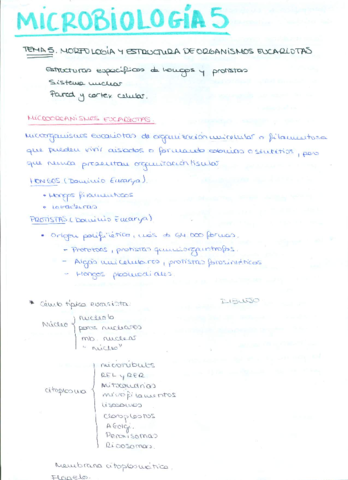 MICROBIOLOGÍA 5
TEMA 5. MORFOLOGÍA Y ESTRUCTURA DE ORGANISMOS EUCARIOTAS
Estructuras específicas de hongos y protistas
Sistema nuclear
Pared y cortex celular.
MICROORGANISMOS EUCARIOTAS
Microorganismos eucariotas de organización unicelular o filamentosa
que pueden vivir aislados o formando colonias o sincitios, pero
que nunca presentan organización tisular
HONGOS (Dominio Eukarya)
• Hongos filamentosos
• Levaduras
PROTISTAS (Dominio Eukarya)
• Origen polifilético, más de 64.000 formas.
- Protozoos, protistas quimiorganotrofos
- Algas unicelulares, protistas fotosintéticos
- Hongos plasmodiales
• Célula típica eucariota:
DIBUJO
Núcleo
nucleolo
poros nucleares
mb. nuclear
citoplasma
microtúbulos
REL y RER
Mitocondrias
microfilamentos
Lisosomas
Cloroplastos
A. Golgi.
Peroxisomas
Ribosomas.
Membrana citoplasmática.
Flagelo.